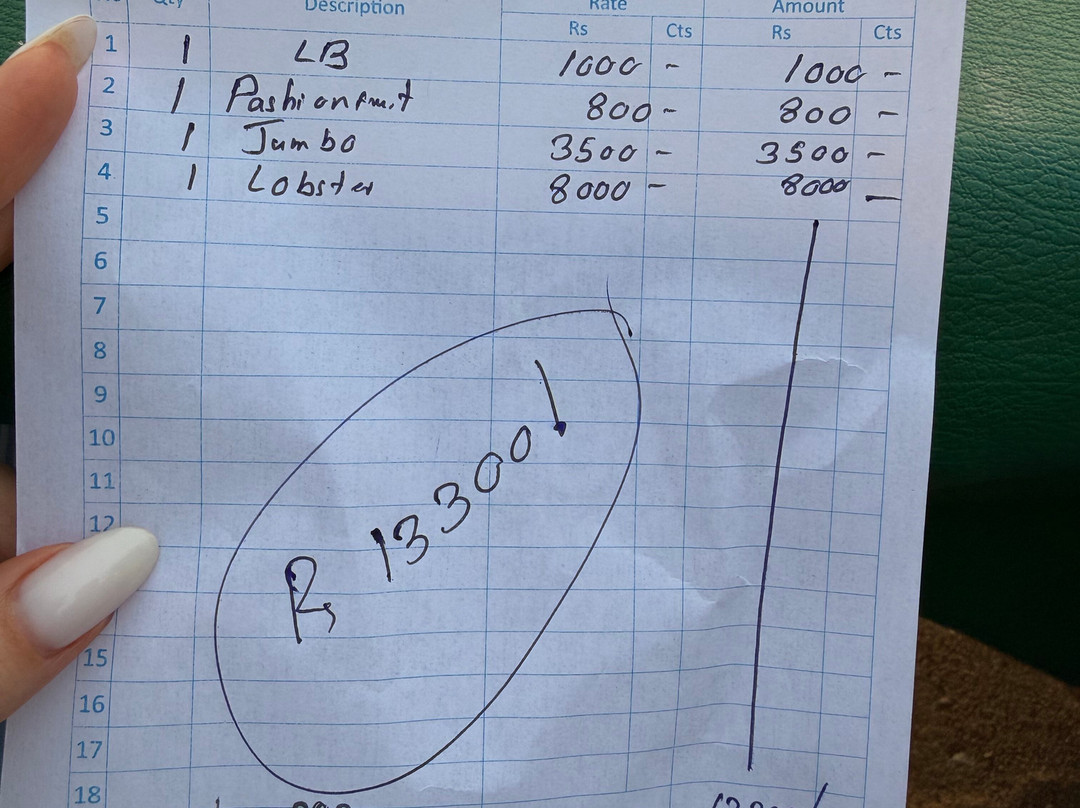 Qty Description Rate Amount
Rs Cts Rs Cts
1 1 LB 1000 - 1000 -
2 1 Pashionfruit 800 - 800 -
3 1 Jumbo 3500 - 3500 -
4 1 Lobster 8000 - 8000 -
5
6
7
8
9
10
11
12
Rs 13300/
15
16
17
18